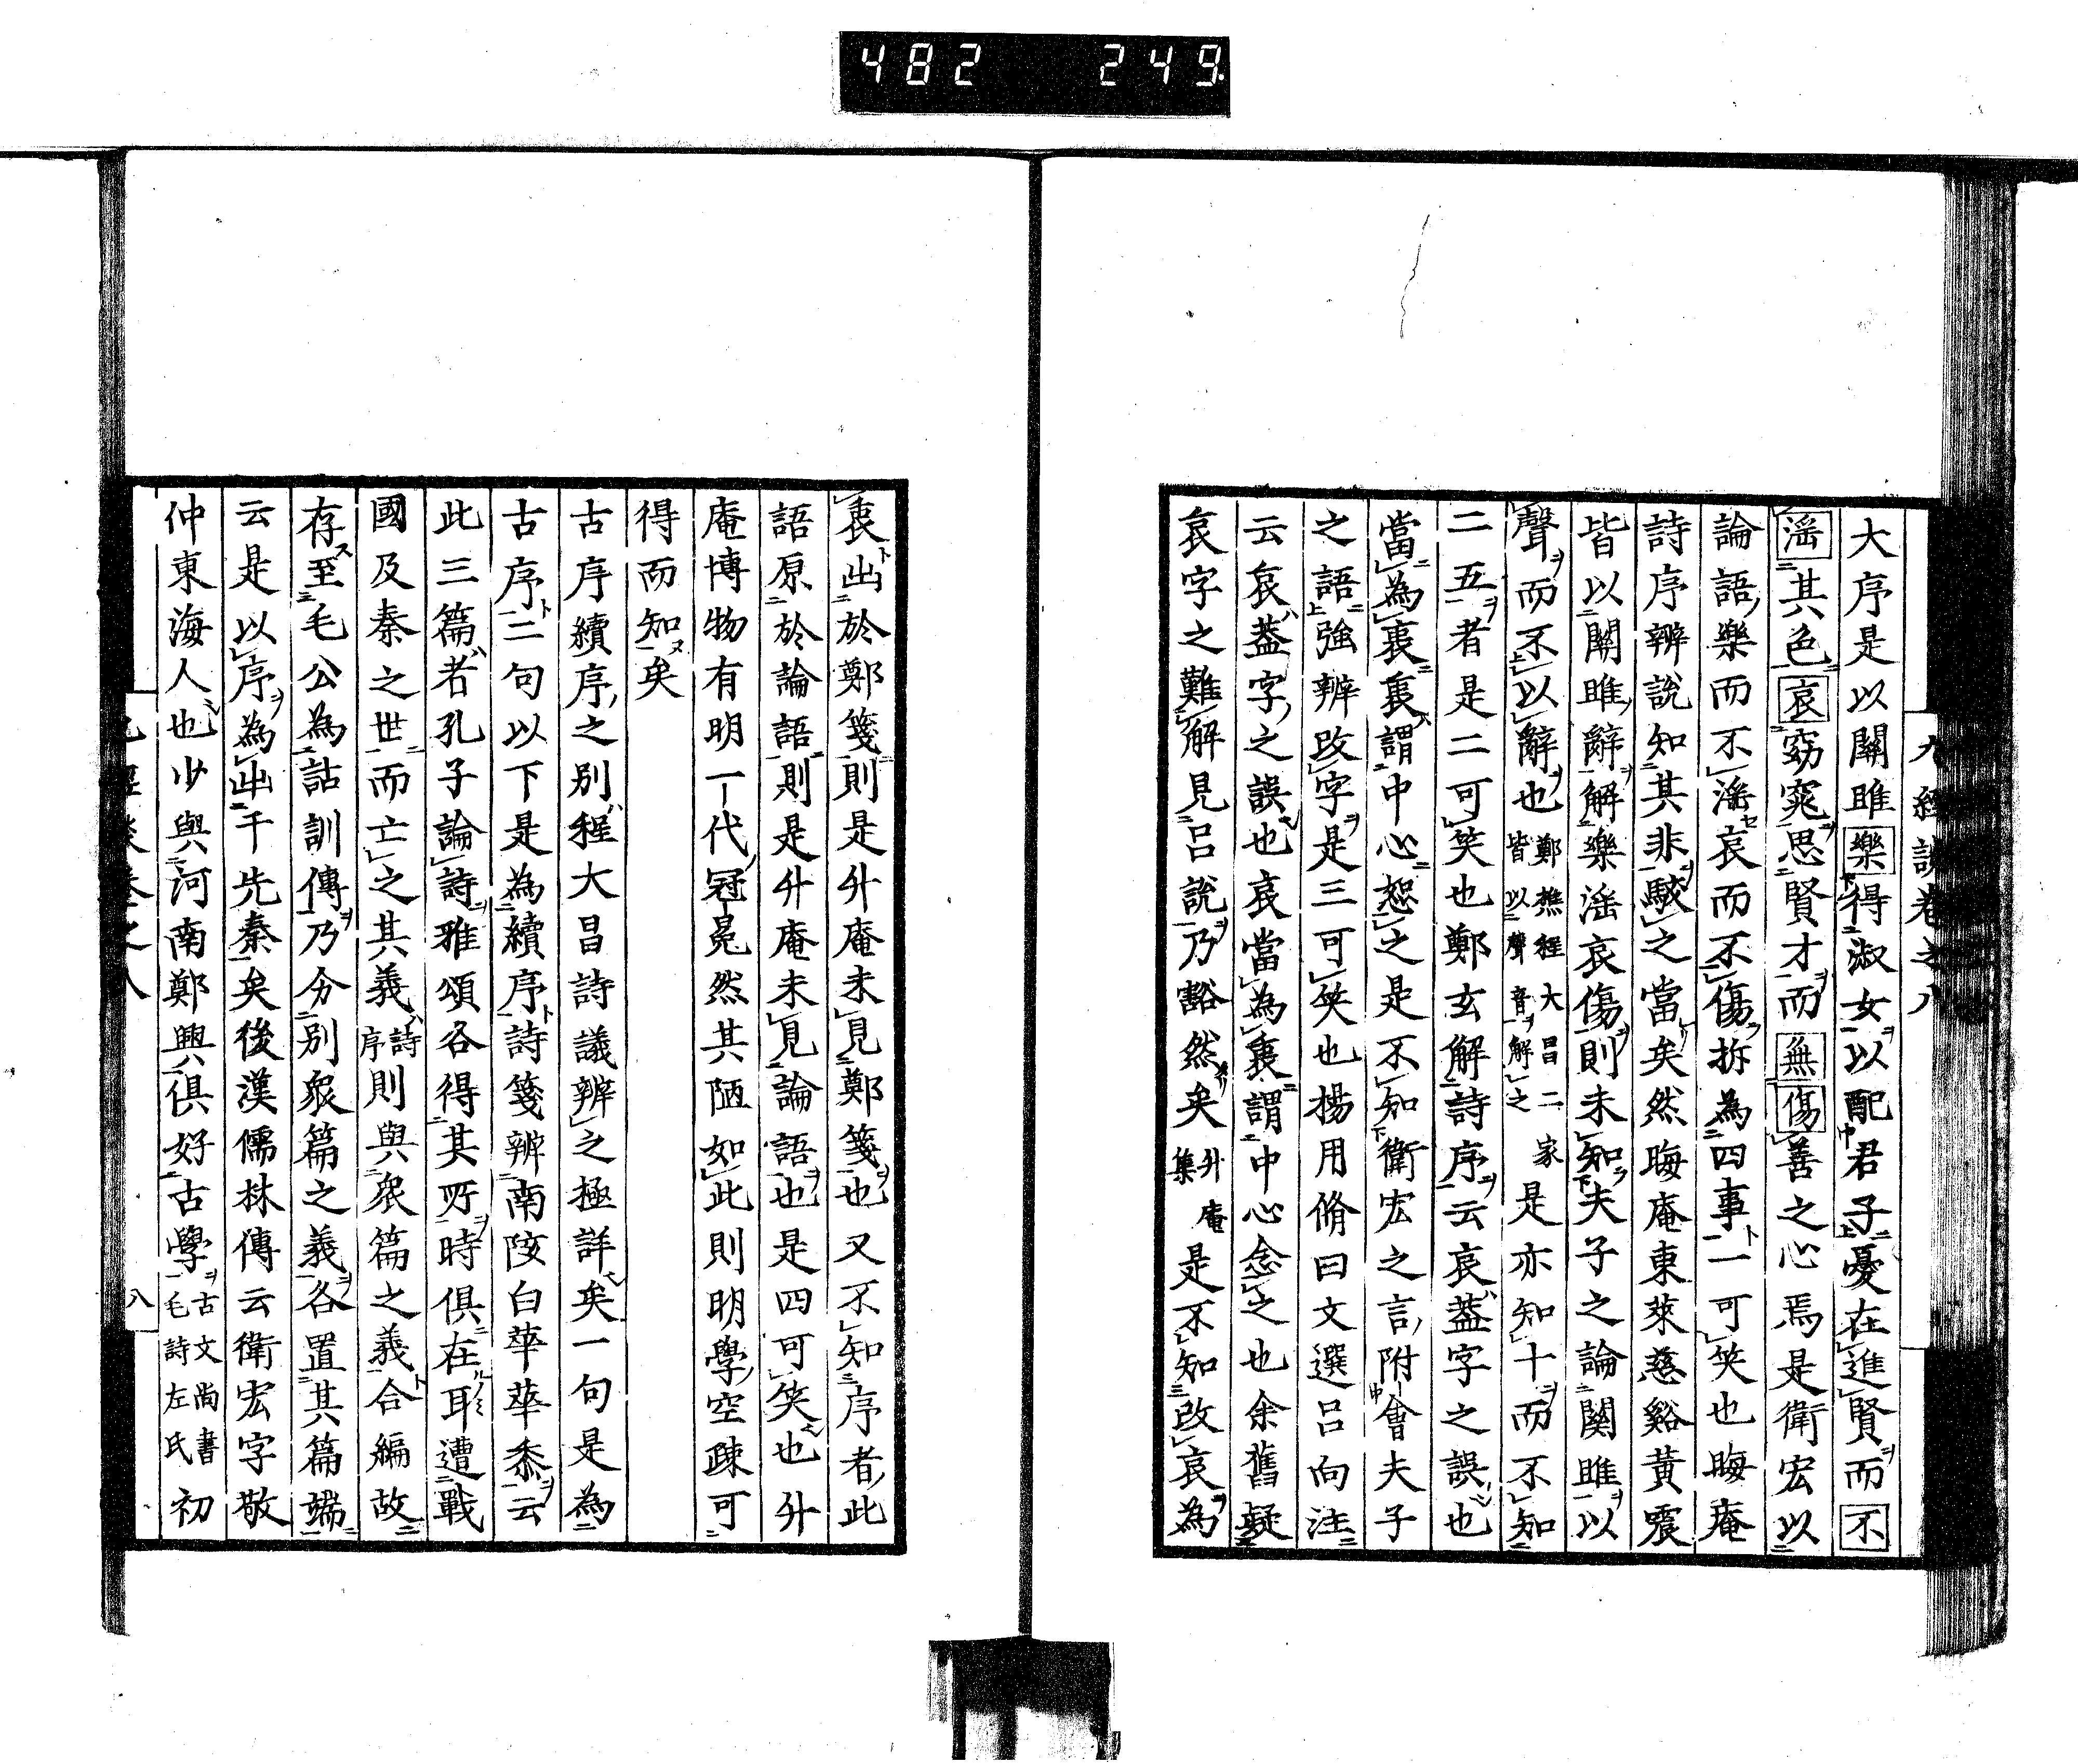 482 249
九經談卷之八
大序是以關雎樂得淑女以配君子憂在進賢而不
淫其色哀窈窕思賢才而無傷善之心焉是衛宏以
論語樂而不淫哀而不傷拆為四事一可笑也晦庵
詩序辨說知其非駮之當矣然晦庵東萊慈谿黃震
皆以關雎辭解樂淫哀傷則未知夫子之論關雎以
聲而不以辭也鄭樵程大昌二家皆以聲音解之是亦知十而不知
二五者是二可笑也鄭玄解詩序云哀蓋字之誤也
當為衷衷謂中心恕之是不知衛宏之言附會夫子
之語強辨改字是三可笑也楊用脩曰文選呂向注
云哀蓋字之誤也哀當為衷謂中心念之也余舊疑
哀字之難解見呂說乃豁然矣升庵集是不知改哀為
衷出於鄭箋則是升庵未見鄭箋也又不知序者此
語原於論語則是升庵未見論語也是四可笑也升
庵博物有明一代冠冕然其陋如此則明學空疎可
得而知矣
古序續序之別程大昌詩議辨之極詳矣一句是為
古序二句以下是為續序詩箋辨南陔白華華黍云
此三篇者孔子論詩雅頌各得其所時俱在耳遭戰
國及秦之世而亡之其義詩序則與衆篇之義合編故
存至毛公為詁訓傳乃分別衆篇之義各置其篇端
云是以序為出于先秦矣後漢儒林傳云衛宏字敬
仲東海人也少與河南鄭興俱好古學古文尚書毛詩左氏初
八